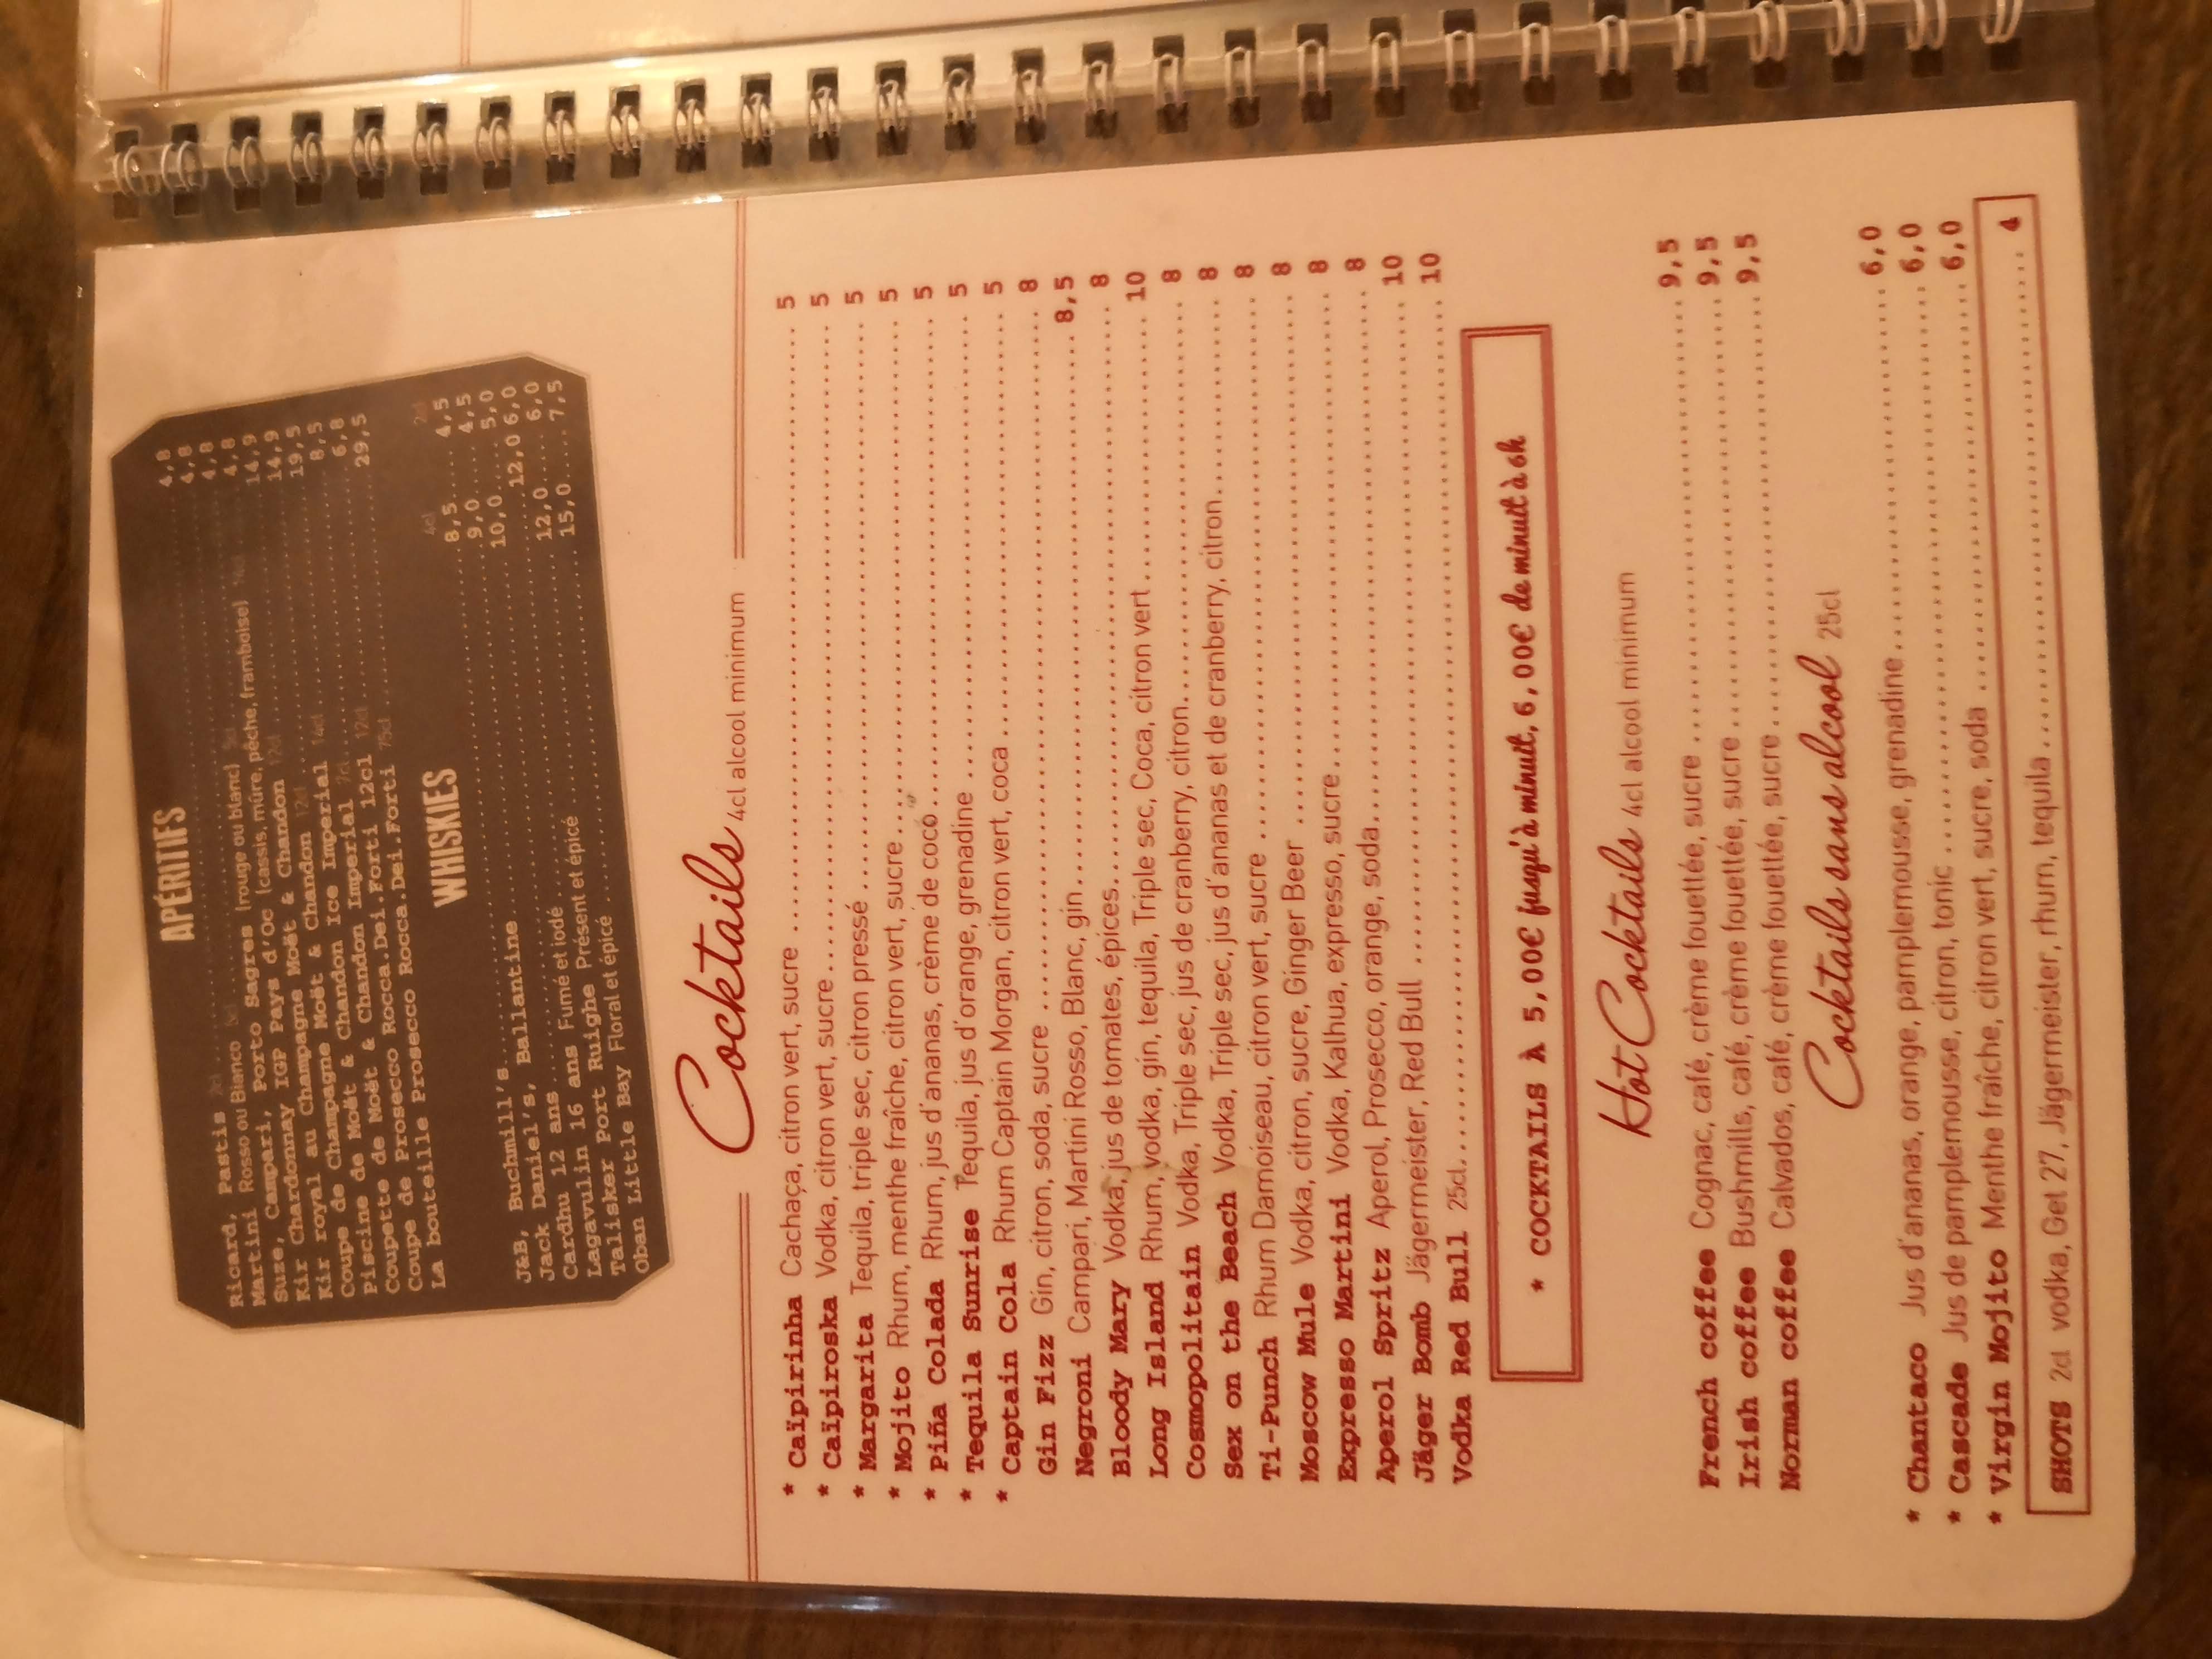 APÉRITIFS
Ricard, Pastis 2cl 4,8
Martini Rosso ou Bianco 5cl 4,8
Suze, Campari, Porto Sagres (rouge ou blanc) 5cl 4,8
Kir Chardonnay IGP Pays d'oc (cassis, mûre, pêche, framboise) 4,8
Kir royal au Champagne Moët & Chandon 12cl 14,9
Coupe de Champagne Moët & Chandon 12cl 14,9
Piscine de Moët & Chandon Ice Imperial 14cl 19,5
Coupette de Moët & Chandon Imperial 7cl 8,5
Coupe de Prosecco Rocca.Dei.Forti 12cl 12cl 6,8
La bouteille Prosecco Rocca.Dei.Forti 75cl 29,5
WHISKIES
4cl 2cl
J&B, Buchmill's, Ballantine 8,5 4,5
Jack Daniel's 9,0 4,5
Cardhu 12 ans 10,0 5,0
Lagavulin 16 ans Fumé et iodé 12,0 6,0
Talisker Port Ruighe Présent et épicé 12,0 6,0
Oban Little Bay Floral et épicé 15,0 7,5
Cocktails 4cl alcool minimum
* Caïpirinha Cachaça, citron vert, sucre 5
* Caïpiroska Vodka, citron vert, sucre 5
* Margarita Tequila, triple sec, citron pressé 5
* Mojito Rhum, menthe fraîche, citron vert, sucre 5
* Piña Colada Rhum, jus d'ananas, crème de coco 5
* Tequila Sunrise Tequila, jus d'orange, grenadine 5
* Captain Cola Rhum Captain Morgan, citron vert, coca 5
Gin Fizz Gin, citron, soda, sucre 8
Negroni Campari, Martini Rosso, Blanc, gin 8,5
Bloody Mary Vodka, jus de tomates, épices 8
Long Island Rhum, vodka, gin, tequila, Triple sec, Coca, citron vert 10
Cosmopolitain Vodka, Triple sec, jus de cranberry, citron 8
Sex on the Beach Vodka, Triple sec, jus d'ananas et de cranberry, citron 8
Ti-Punch Rhum Damoiseau, citron vert, sucre 8
Moscow Mule Vodka, citron, sucre, Ginger Beer 8
Expresso Martini Vodka, Kalhua, expresso, sucre 8
Aperol Spritz Aperol, Prosecco, orange, soda 8
Jäger Bomb Jägermeister, Red Bull 10
Vodka Red Bull 25cl 10
* COCKTAILS À 5,00€ jusqu'à minuit, 6,00€ de minuit à 6h
Hot Cocktails 4cl alcool minimum
French coffee Cognac, café, crème fouettée, sucre 9,5
Irish coffee Bushmills, café, crème fouettée, sucre 9,5
Norman coffee Calvados, café, crème fouettée, sucre 9,5
Cocktails sans alcool 25cl
* Chantaco Jus d'ananas, orange, pamplemousse, grenadine 6,0
* Cascade Jus de pamplemousse, citron, tonic 6,0
* Virgin Mojito Menthe fraîche, citron vert, sucre, soda 6,0
SHOTS 2cl vodka, Get 27, Jägermeister, rhum, tequila 4